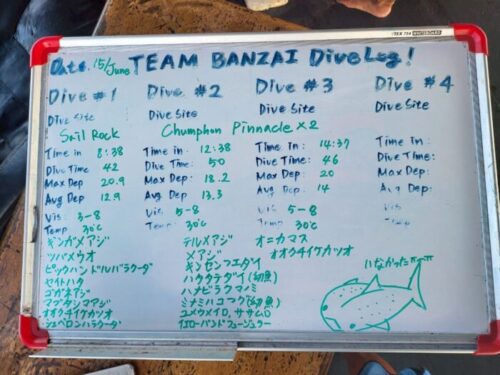 ITEK 754 WHITEBOARD
Date 15/June TEAM BANZAI Dive Log!
Dive #1 Dive #2 Dive #3 Dive #4
Dive Site Dive Site Dive Site Dive Site
Sail Rock Chumphon Pinnacle ×2
Time in 8:38 Time in: 12:38 Time in: 14:37 Time in:
Dive Time 42 Dive Time: 50 Dive Time: 46 Dive Time:
Max Dep 20.9 Max Dep: 18.2 Max Dep: 20 Max Dep:
Avg Dep 12.9 Avg Dep: 13.3 Avg Dep: 14 Avg Dep:
Vis: 3-8 Vis: 5-8 Vis: 5-8 Vis:
Temp 30℃ Temp: 30℃ Temp: 30℃ Temp
ギンガメアジ テルメアジ オニカマス
ツバメウオ メアジ オオクチイケカツオ
ピックハンドルバラクーダ キンセンフエダイ いなかったー
セイトハタ ハタタテダイ(幼魚)
コガネアジ ハナビラクマノミ
マブタシマアジ ミナミハコフグ(幼魚)
オオクチイケカツオ ユメウメイロ, ササムロ
シェベロンバラクーダ イエローバンドフュージュラー